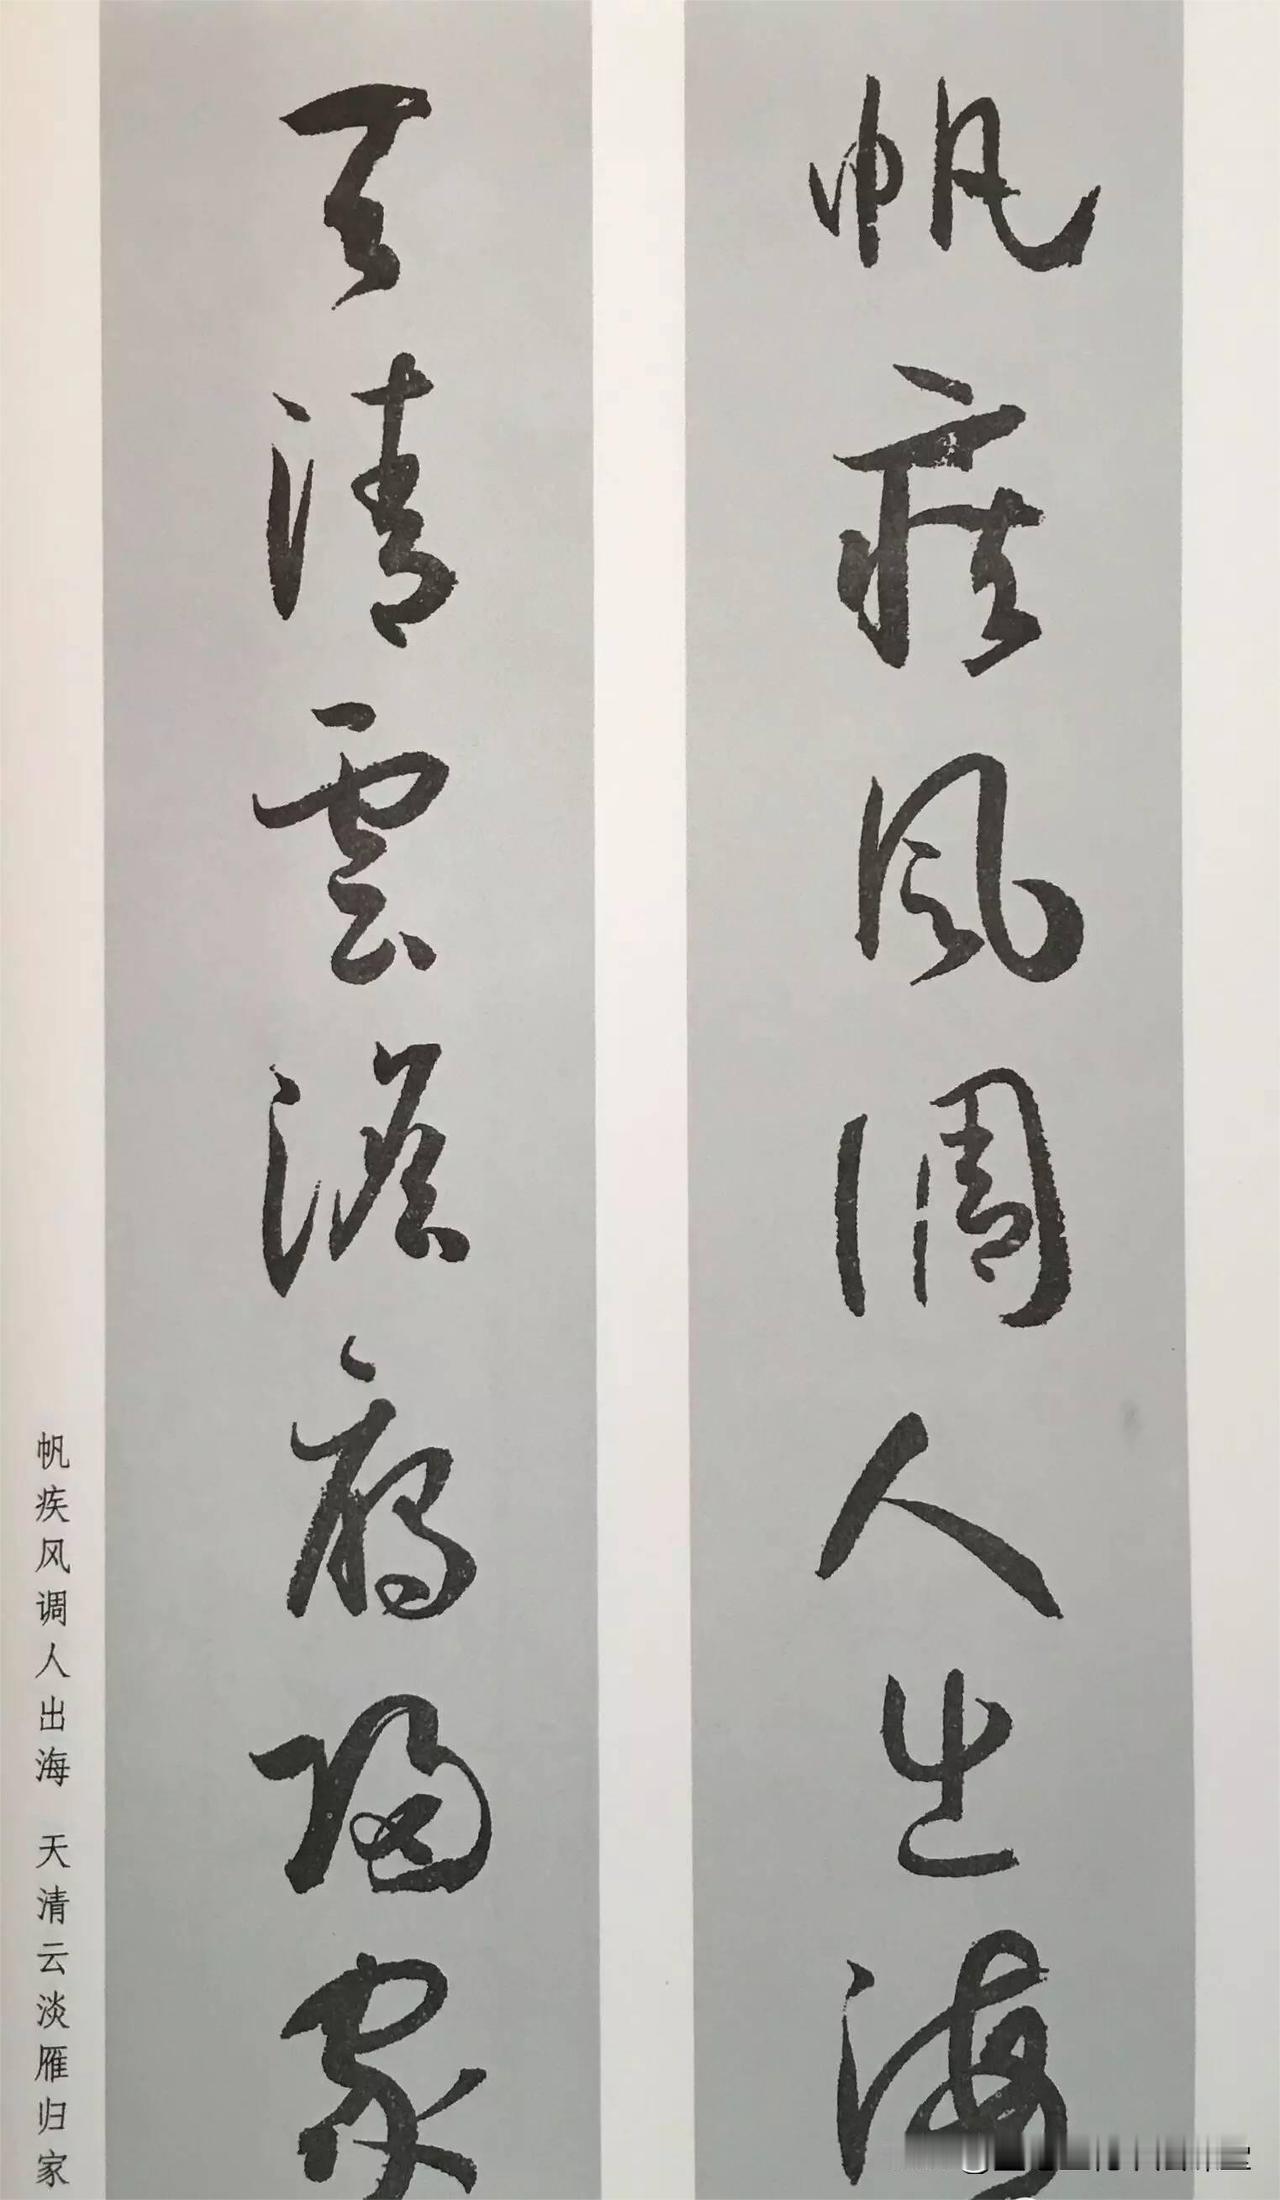 帆疾风调人出海
天清雲澹雁归家
帆疾风调人出海 天清云淡雁归家